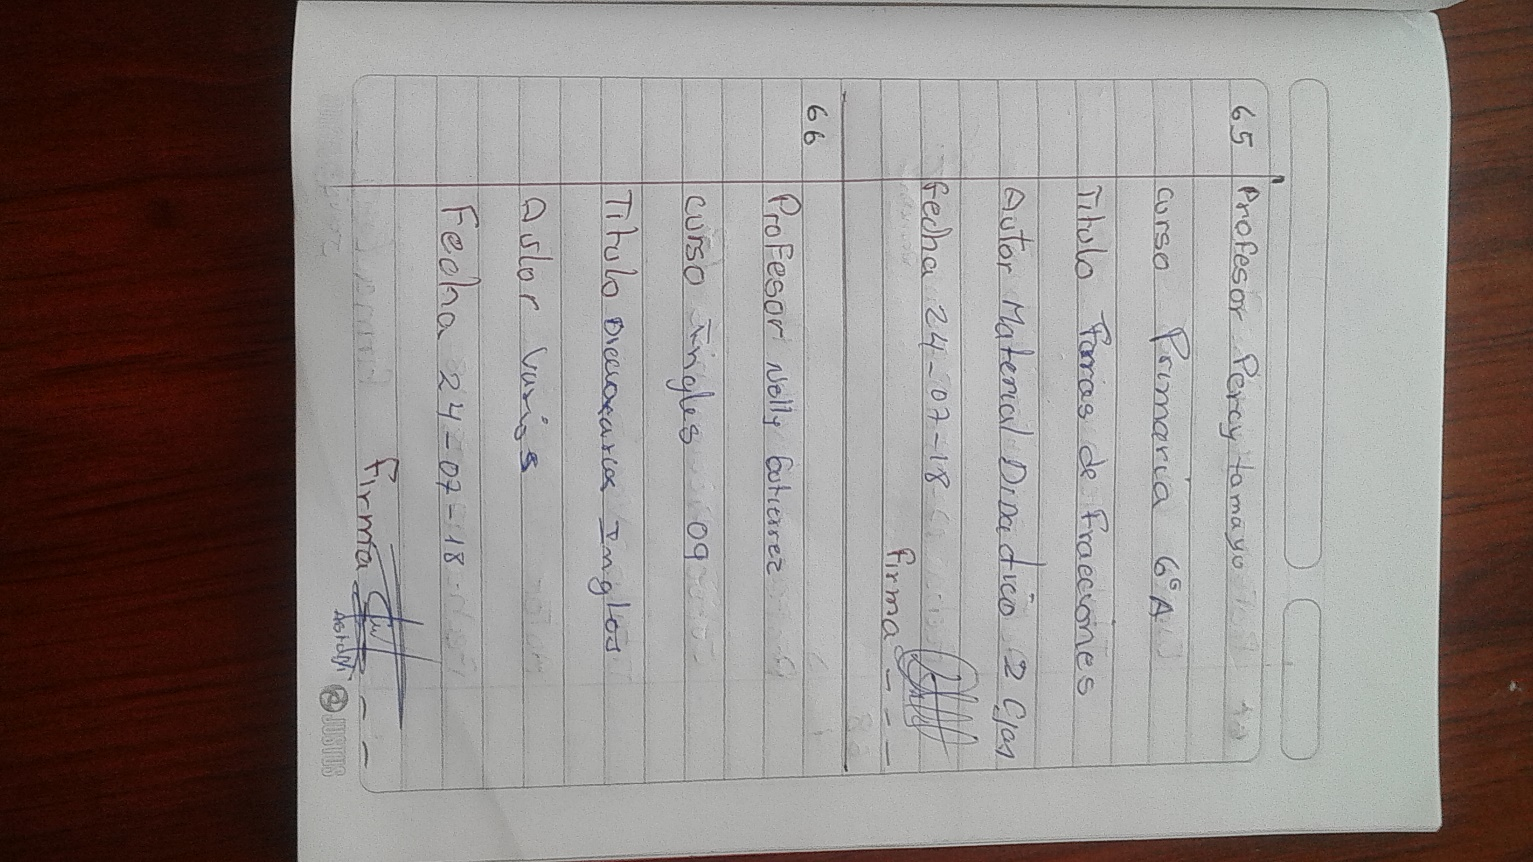 65 Profesor Percy tamayo
curso Primaria 6º A
Titulo Torras de Fraecciones
Autor Material Didactico 2 Cjas
fecha 24-07-18
firma - - -
66
Profesor Nelly Gutierrez
curso Ingles 09
Titulo Diccionarios Ingles
Autor Varios
Fecha 24-07-18
Firma - -
JUSTUS